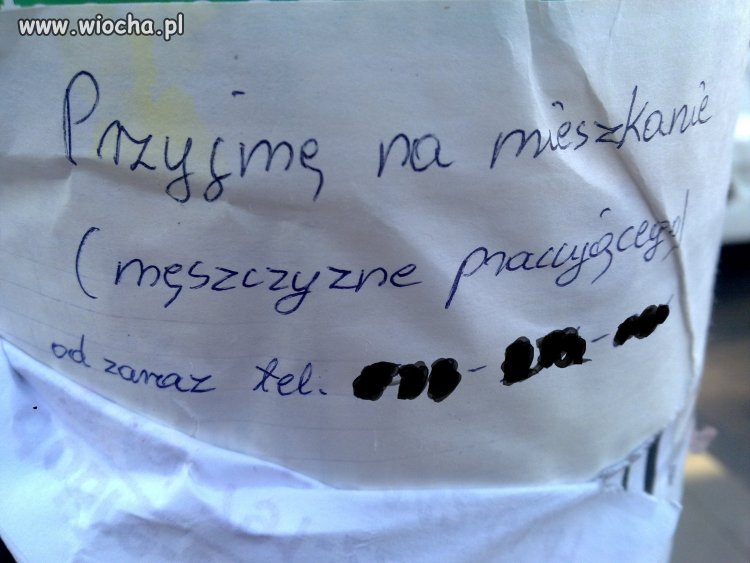 www.wiocha.pl
Przyjmę na mieszkanie
(męszczyzne pracującego)
od zaraz tel.